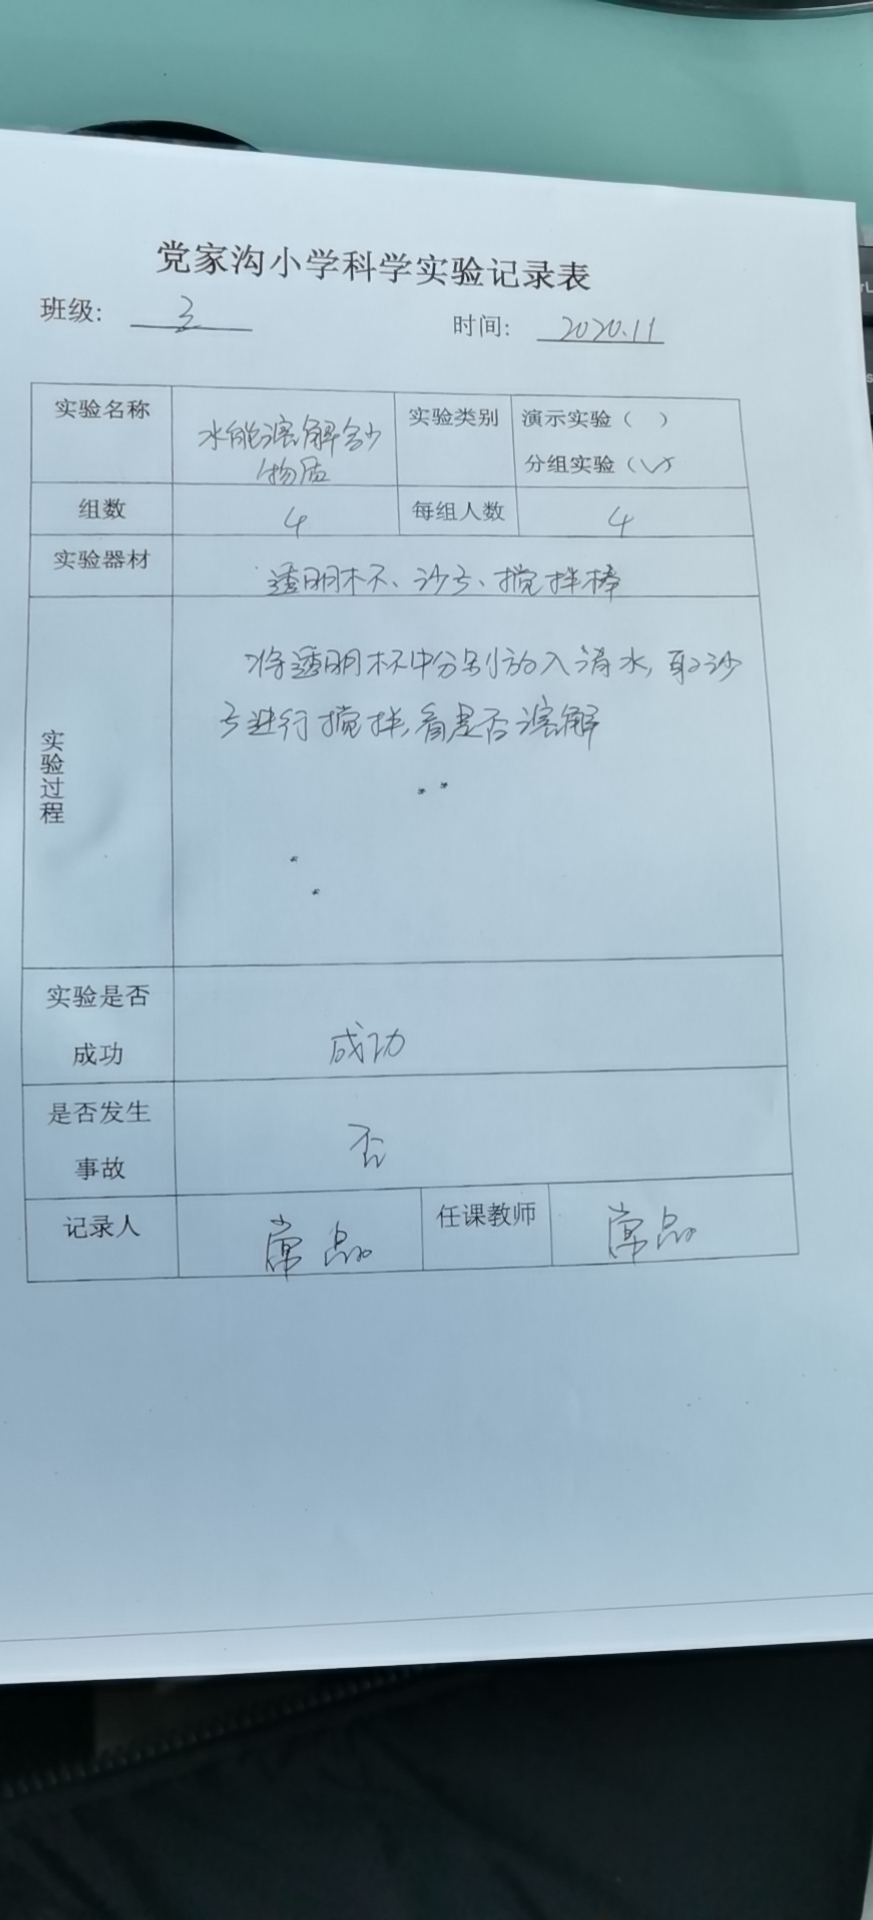 党家沟小学科学实验记录表
班级: 三 时间: 2020.11
实验名称 水能溶解多少物质 实验类别 演示实验（ ）
分组实验（✓）
组数 4 每组人数 4
实验器材 透明杯、沙子、搅拌棒
实验过程
将透明杯中分别放入清水,取沙
子进行搅拌,看是否溶解
实验是否成功 成功
是否发生事故 否
记录人 常 任课教师 常